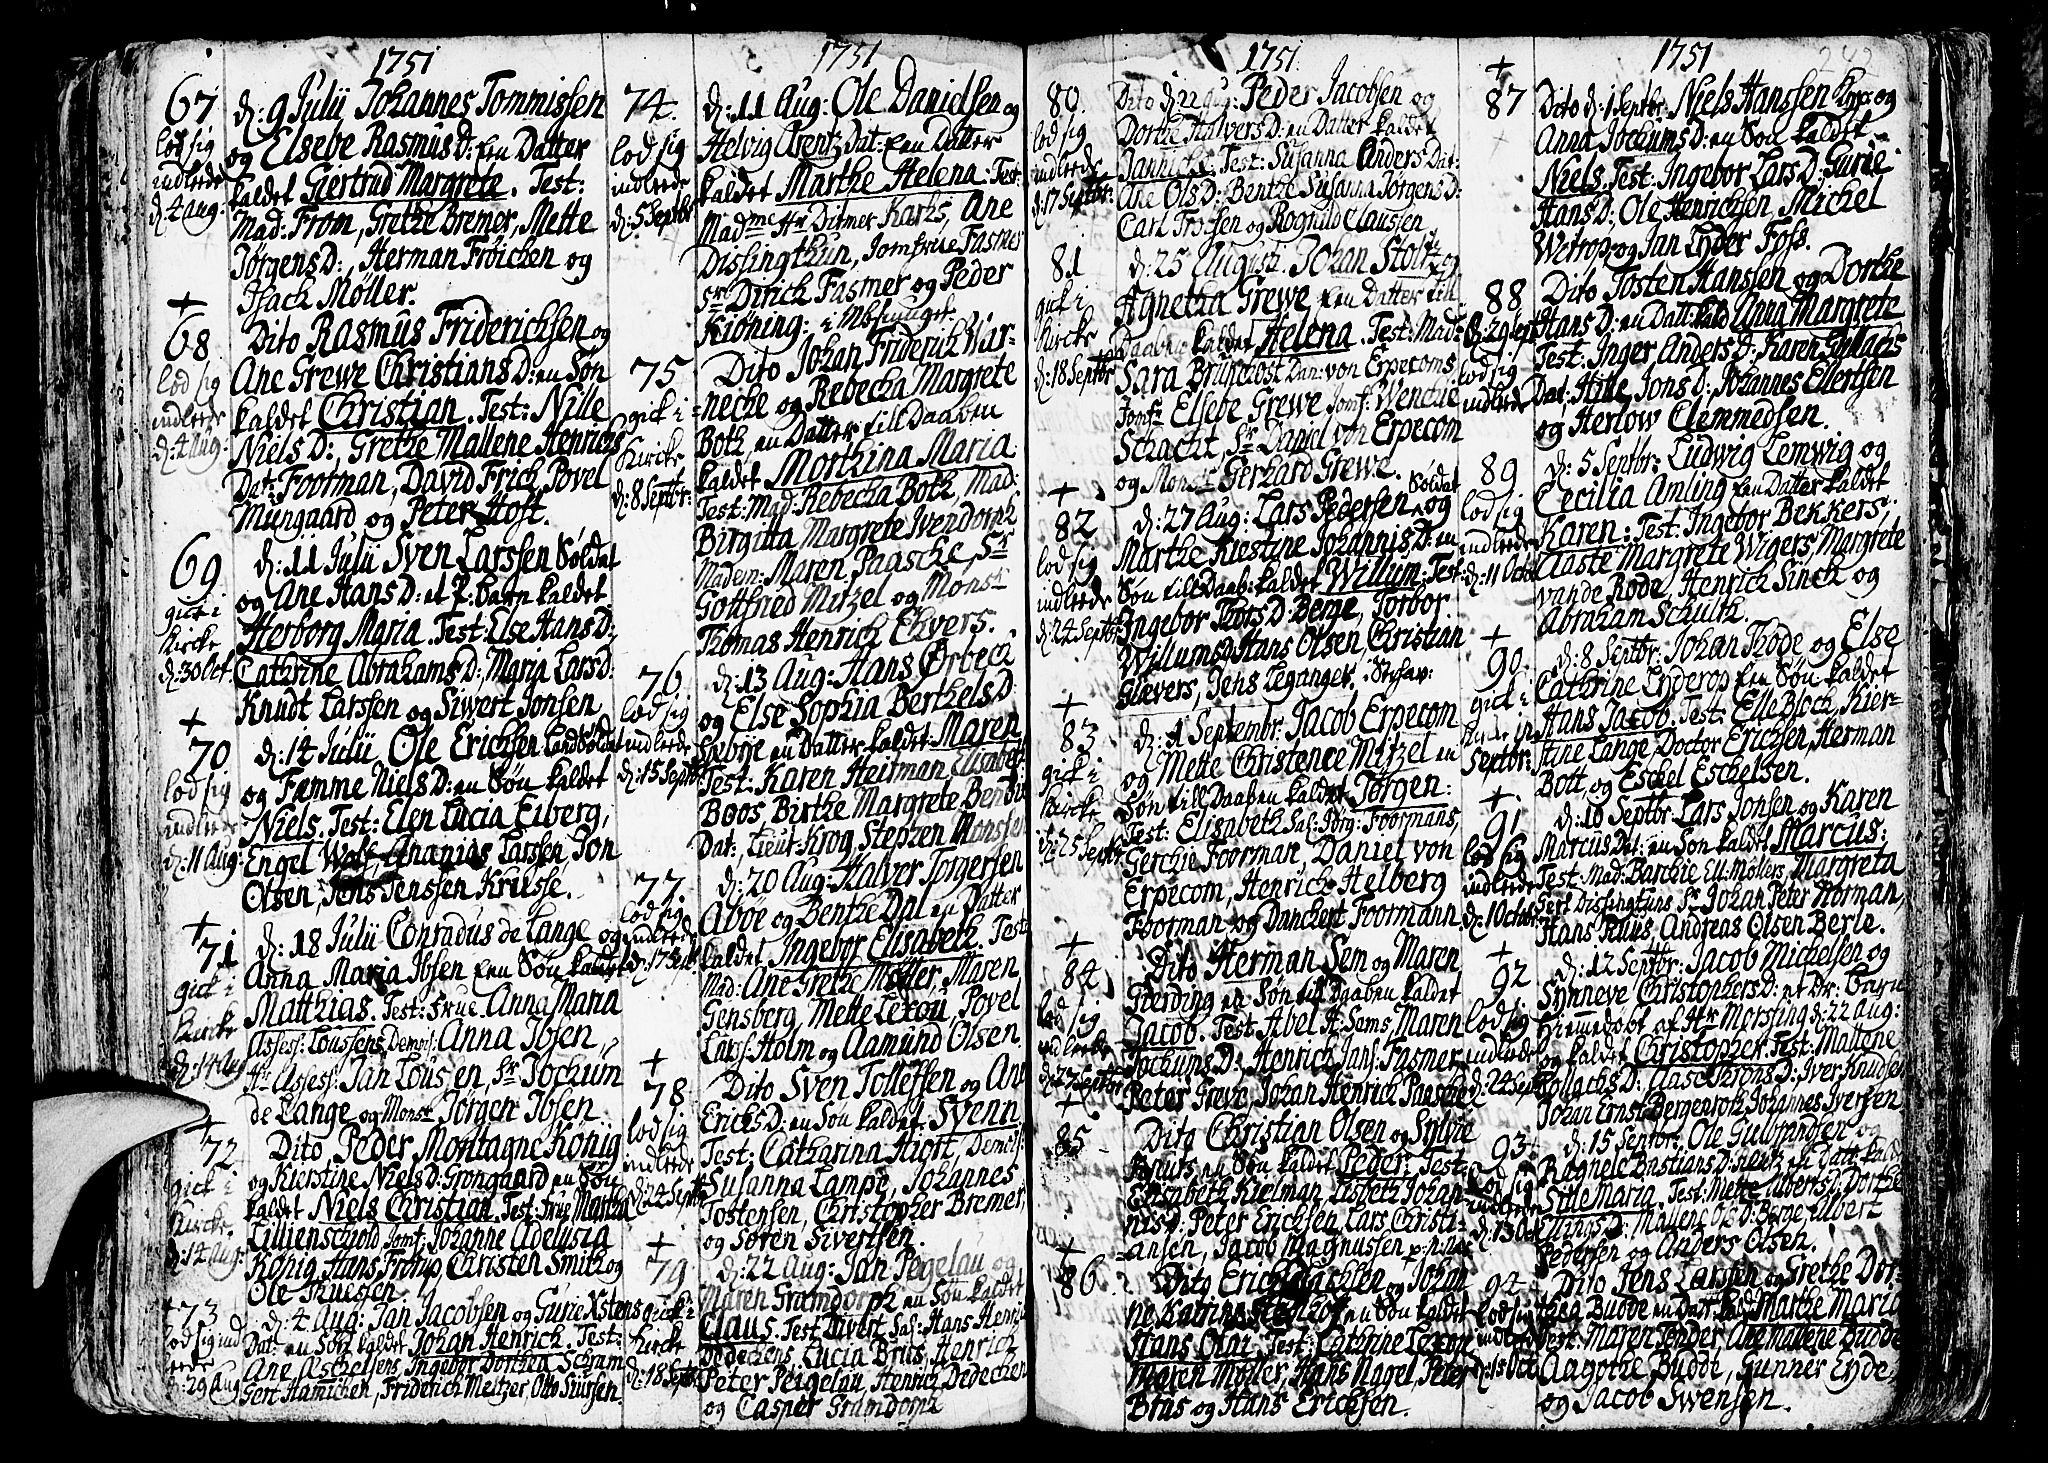 1751
67
lod sig
indlede
d: 4 Aug:
d: 9 Julii Johannes Tommissen
og Elsebe Rasmus D: Een Datter
kaldet Giertrud Margrete. Test:
Mad: From, Grethe Bremer, Mette
Jørgens D:, Herman Fröichen og
Isack Møller.
+
68
lod sig
indlede
d: 4 Aug:
Dito Rasmus Friderichsen og
Ane Grewe Christians D: en Søn
kaldet Christian. Test: Nille
Niels D:, Grethe Mallene Henrichs
Dat: Footman, David Frich, Povel
Mungaard og Peter Høft.
69
gick i
Kircke
d: 30 Oct.
d: 11 Julii Sven Larssen Søldat
og Ane Hans D: et P: barn kaldet
Herborg Maria. Test: Else Hans D:
Cathrine Abrahams D: Maria Lars D:
Knudt Larssen og Siwert Jonsen
+
70
lod sig
indlede
d: 11 Aug:
d: 14 Julii Ole Erichsen Landsoldat
og Fæmme Niels D: en Søn kaldet
Niels. Test: Elen Lucia Eiberg,
Engel Wolf, Ananias Larssen, Jon
Olsen, Jens Jenssen Krusse.
+
71
gick i
Kircke
d: 14 Aug
d: 18 Julii Conradus de Lange og
Anna Maria Ibsen Een Søn kaldet
Matthias. Test: Frue Anna Maria
Assess: Toussens, Demois: Anna Ibsen
Hr Assess: Jan Tousen, Sr Jochum
de Lange og Monsr Jørgen Ibsen
+
72
gick i
Kircke
d: 14 Aug:
Dito Peder Montagne König
og Kierstine Niels D: Grongaard en Søn
kaldet Niels Christian. Test: Frue Martha
Lillienschiold Jomf: Johanne Adelusia
König, Hans Frørup, Christen Smith og
Ole Truesen.
+ 73
lod sig ind
lede
d: 29 Aug
d: 4 Aug: Jan Jacobsen og Gurie Xstens
Dat: en Søn kaldet Johan Henrich. Test:
Ane Aschelsens, Ingebor Dorthea Schram
Gert Hamichen, Friderich Meltzer, Otto Siursen.
1751
74.
lod sig
indlede
d: 5 Septbr
d: 11 Aug: Ole Danielsen og
Helvig Arentz Dat: Een Datter
kaldet Marthe Helena: Test:
Madme Hr Ditmer Karhs, Ane
Dissingthun, Jomfrue Fasmer
Sr Dirich Fasmer og Peder
Kiøning: i Mishuuset.
75
gick i
Kircke
d: 8 Septbr:
Dito Johan Friderich War-
necke og Rebecka Margrete
Both, en Datter till Daaben
kaldet Morthina Maria
Test: Mad: Rebecha Both, Mad:
Birgitta Margrete Wendorph
Madem: Maren Paasche Sr
Gottfried Mitzel og Monsr
Thomas Henrich Ehvers.
76
lod sig
indlede
d: 15 Septbr
d: 13 Aug: Hans Ørbeck
og Else Sophia Berthels D:
Lybye en Datter kaldet Maren
Test: Karen Heitman Elisabeth
Boos, Birthe Margrete Bendix
Dat:, Lieut: Krog, Stephen Monssen
77
lod sig
indlede
d: 17 Sept:
d: 20 Aug: Halver Torgersen
Aboe og Benthe Dal en Datter
kaldet Ingebor Elisabeth. Test:
Mad: Ane Grethe Møller, Maren
Gensberg, Mette Lexou, Povel
Larss: Holm og Aamund Olsen.
+
78
lod sig
indlede
d: 24 Septbr
Dito Sven Tolleffen og Ane
Erichs D: en Søn kaldet Svenn
Test: Catharina Hiort, Demois:
Susanna Lampe, Johannes
Tostensen, Christopher Bremer,
og Søren Sivertsen.
+
79
gick i
Kircke
d: 18 Septbr:
d: 22 Aug: Jan Pegelau og
Maren Gramdorph en Søn kaldet
Claus. Test: Divert Sal: Hans Henrich
Dedeckens, Lucia Brus, Henrich
Peter Peigelau, Henrich Dedecken
og Casper Gramdorph
1751.
80.
lod sig
indlede
d: 17 Septbr:
Dito d: 22 Aug: Peder Jacobsen og
Dorthe Halvers D: en Datter kaldet
Jannicke. Test: Susanna Anders Dat:
Ane Ols D: Benthe Susanna Jørgens D:
Carl Troisen og Rognild Claussen
81
gick i
Kircke
d: 18 Septbr
d: 25 Augusti Johan Stoltz og
Agnetha Grewe Een Datter till
Daaben kaldet Helena. Test: Mad:
Sara Brunchost Dan: von Erpecoms
Jomf: Elsebe Grewe Jomf: Wencke
Schacht, Sr Daniel von Erpecom
og Monsr Gerhard Grewe.
+
82
lod sig
indlede
d: 24 Septbr
d: 27 Aug: Lars Pedersen Soldat og
Marthe Kiestine Johannis D: en
Søn till Daab: kaldet Willum. Test:
Ingebor Thors D: Berge, Torbor
Willums D: Hans Olsen, Christian
Glævers, Jens Leganger. i Styhav:
+
83
gick i
Kircke
d: 25 Septbr
d: 1 Septembr: Jacob Erpecom
og Mette Christence Mitzel en
Søn till Daaben kaldet Jørgen:
Test: Elisabeth Sal: Jørg: Foormans,
Gerchie Foorman, Daniel von
Erpecom, Henrich Helberg
Foorman og Danckert Foormann
+
84
lod sig
indlede
d: 27 Septbr
Dito Herman Sem og Maren
Gierding en Søn till Daaben kaldet
Jacob. Test: Abel A: Sems, Maren
Jochums D:, Henrich Jans: Fasmer
Peter Greve, Johan Henrich Paasche
+
85
Dito Christian Olsen og Sylvie
Knuts en Søn kaldet Peder: Test:
Elisabeth Kielman, Lisbeth Johan
nis D: Peter Erichsen, Lars Christi-
ansen, Jacob Magnussen
+
86
Dito Erich Isachsen og Johan
ne Katrine en Søn kaldet
Hans Olai. Test: Cathrine Lexou
Maren Møller, Hans Nagel, Peter
Brus og Hans Erichsen.
1751
242
+
87
Dito d: 1 Septbr: Niels Hanssen Knæ og
Anna Jochums D: en Søn kaldet
Niels. Test: Ingebor Lars D: Gurie
Hans D:, Ole Henrichsen, Michel
Wetrop, og Jan Lyder Foss.
88
d: 29 Sept
lod sig
indlede
Dito Tosten Hanssen og Dorthe
Hans D: en Datt: kald Anna Margrete
Test: Inger Anders D: Karen Gullachs
Dat: Hitte Jons D: Johannes Ellertsen
og Herlow Clemmedsen.
89
lod sig
indlede
d: 11 Octob
d: 5 Septbr: Ludwig Lemwig og
Cecilia Amling Een Datter kaldet
Karen: Test: Ingebor Bekkers,
Aaste Margrete Wigers, Margrete
vande Rode, Henrich Sinch og
Abraham Schultz.
+
90
gick i
Kircke
Septbr:
d: 8 Septbr: Johan Rode og Else
Cathrine Lyderop Een Søn kaldet
Hans Jacob. Test: Elle Bloch, Kier-
stine Lange, Doctor Erichsen, Herman
Bott og Eschel Eschelsen.
+
91
lod sig
indlede
d: 1 Octobr
d: 10 Septbr Lars Jonsen og Karen
Marcus Dat: en Søn kaldet Marcus:
Test: Mad: Barchie Ell: Møllers, Margreta
Gert Dissingtuns Sr Johan Peter Horman,
Hans Ruus, Andreas Olsen Berle.
+
92
lod sig
indlede
d: 24 Sept
d: 12 Septbr: Jacob Michelsen og
Synneve Christophers D: et Dr: barn
Hiemmedøbt af Hr Morsing d: 22 Aug:
og kaldet Christopher. Test: Mallene
Kollachs D: Aase Throns D: Iver Knudsen
Johan Ernst Bergenroth, Johannes Iversen
93.
lod sig
indlede
d: 13 Oct
d: 15 Septbr: Ole Gulbrandsen og
Ragnele Bastians D: Een Datt: kald:
Sitle Maria. Test: Mette Albers D: Dorthe
Ellings D: Mallene Ols D: Berge, Albert
Pedersen og Anders Olsen.
94
lod sig
indlede
d: 13 Oct
Dito Jens Larssen og Grethe Dor-
thea Budde en Datt: kald Marthe Maria
Test: Maren Tender, Ane Mallene Budde
Aagothe Budde, Gunner Eyde,
og Jacob Swensen.